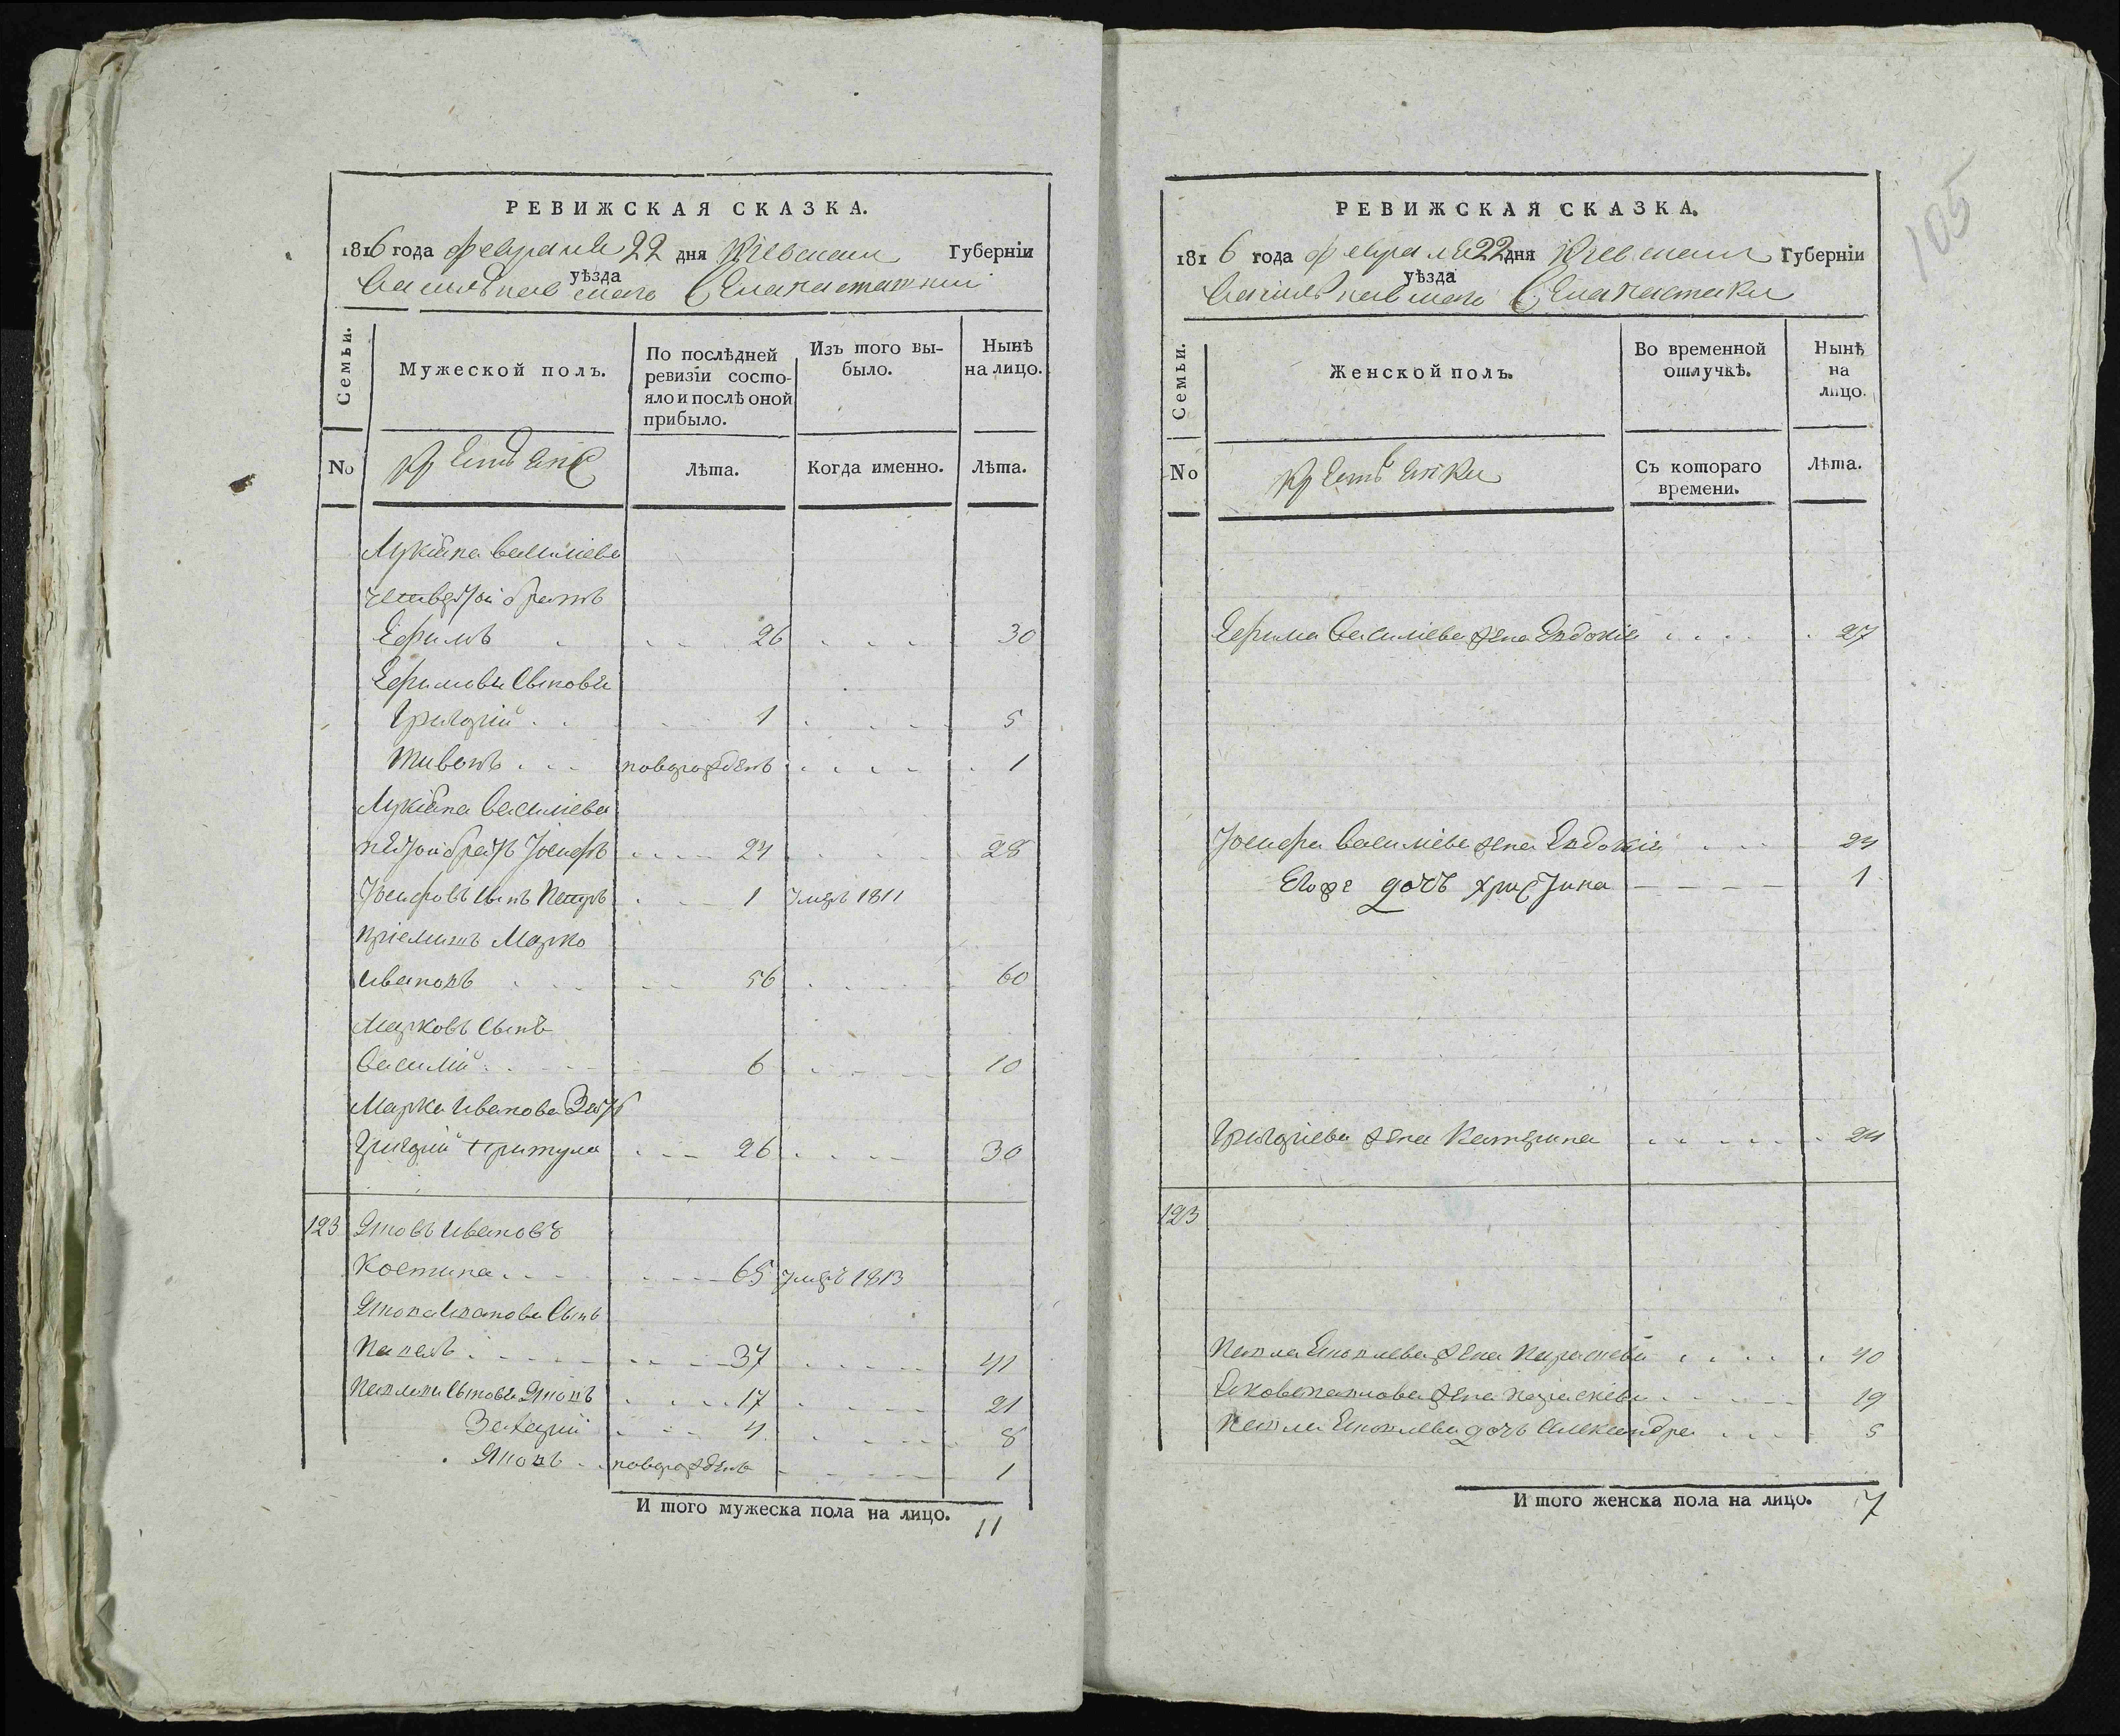 РЕВИЖСКАЯ СКАЗКА.
1816 года февраля 22 дня Кіевской Губерніи
уѣзда
Васильковского
Семьи.
Мужеской полъ.
По послѣдней ревизіи состояло и послѣ оной прибыло.
Изъ того выбыло.
Нынѣ на лицо.
No
Лѣта.
Когда именно.
Лѣта.
Лукіяна Василіева
четвертой братъ
Ефимъ 26 30
Ефимовы сыновьи
Григорій 1 5
новорожденъ 1
Лукіяна Василіева
пятой братъ Іосифъ 24 28
Іосифовъ сынъ Петръ 1 умръ 1811
Пріемышъ Марко
Ивановъ 56 60
Марковъ сынъ
Василій 6 10
Марка Иванова зять
Григорій Притула 26 30
123 Яковъ Ивановъ
Костина 65 умръ 1813
Якова Иванова сынъ
Павелъ 37 41
Павловы сыновья Яковъ 17 21
Захарій 4 8
Яковъ новорожденъ 1
И того мужеска пола на лицо. 11
105
РЕВИЖСКАЯ СКАЗКА.
1816 года февраля 22 дня Кіевской Губерніи
уѣзда
Васильковского
Семьи.
Женской полъ.
Во временной отлучкѣ.
Нынѣ на лицо.
No
Съ котораго времени.
Лѣта.
Ефима Василіева жена Евдокія 27
Іосифа Василіева жена Евдокія 24
Егоже дочь Христина 1
Григоріева жена Катерина 24
123
Павла Яковлева жена Параскева 40
Якова Павлова жена Параскева 19
Павла Яковлева дочь Александра 5
И того женска пола на лицо. 7